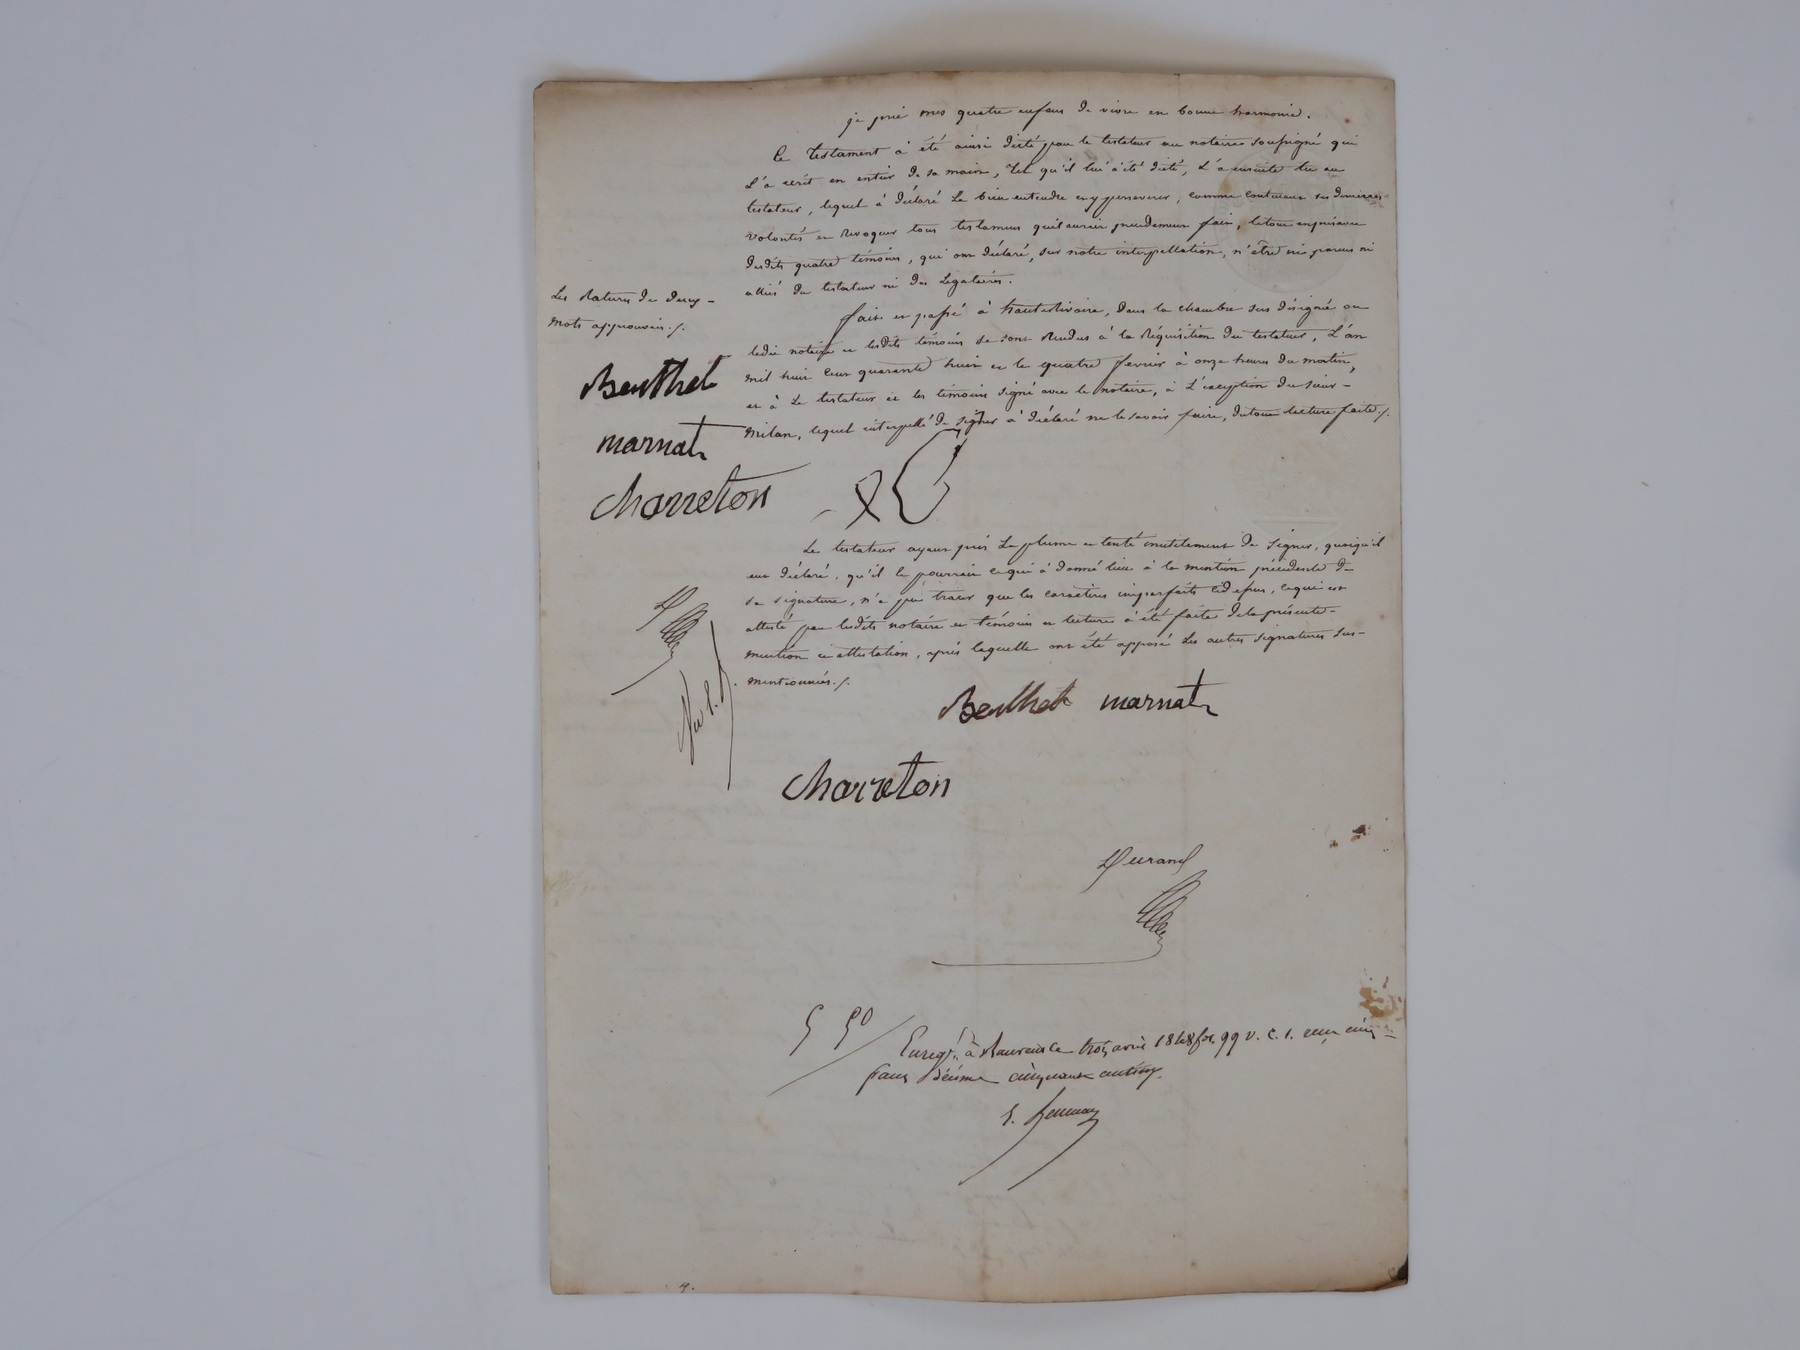 je prie mes quatre enfans de vivre en bonne harmonie.
Ce testament à été ainsi dicté par le testateur au notaire soussigné qui
l'a écrit en entier de sa main, tel qu'il lui a été dicté, l'a ensuite lu au
testateur, lequel à déclaré le bien entendre et y perseverer, comme contenant ses dernieres
volontés et revoquer tous testamens qu'il aurait precedemment fait, le tout en présence
desdits quatre témoins, qui ont déclaré, sur notre interpellation, n'être ni parens ni
alliés du testateur ni des légataires.
fait et passé à hauterivoire, dans la chambre sus désignée ou
ledit notaire et lesdits témoins se sont rendus à la réquisition du testateur, L'an
mil huit cent quarante huit et le quatre fevrier à onze heures du matin,
et à le testateur et les témoins signé avec le notaire, à l'exception du sieur
milan, lequel interpellé de signer à déclaré ne le savoir faire, du tout lecture faite ./.
Les Ratures de deux
mots approuvées ./.
Berthet
marnat
Charreton
Le testateur ayant pris la plume et tenté inutilement de signer, quoiqu'il
eut déclaré, qu'il le pourrait ce qui à donné lieu à la mention précédente de
sa signature, n'a pu tracer que les caractères imparfaits ci dessus, ce qui est
attesté par lesdits notaire et témoins et lecture à été faite de la présente
mention et attestation, après laquelle ont été apposé les autres signatures sus-
mentionnées ./.
D
Berthet marnat
Charreton
Durand
5 50
Enregé. à St Laurent le trois avril 1848 fo. 99 v. c. 1. reçu cinq
francs décime cinquante centimes.
4.